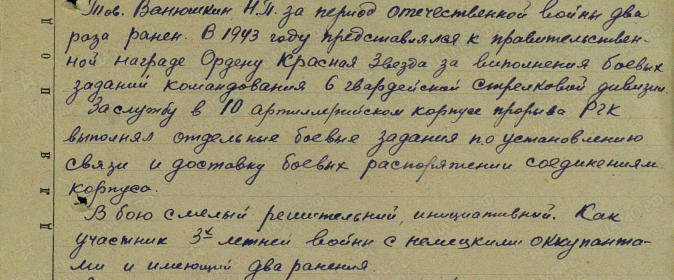 Тов. Ванюшкин Н.П. за период отечественной войны два
раза ранен. В 1943 году представлялся к правительствен-
ной награде Ордену Красная Звезда за выполнения боевых
заданий командования 6 гвардейской стрелковой дивизии.
За службу в 10 артиллерийском корпусе прорыва РГК
выполнял отдельные боевые задания по установлению
связи и доставку боевых распоряжении соединениям
корпуса.
В бою смелый решительний, инициативный. Как
участник 3х летней войни с немецкими оккупанта-
ми и имеющий два ранения.
ДЛЯ ПОД